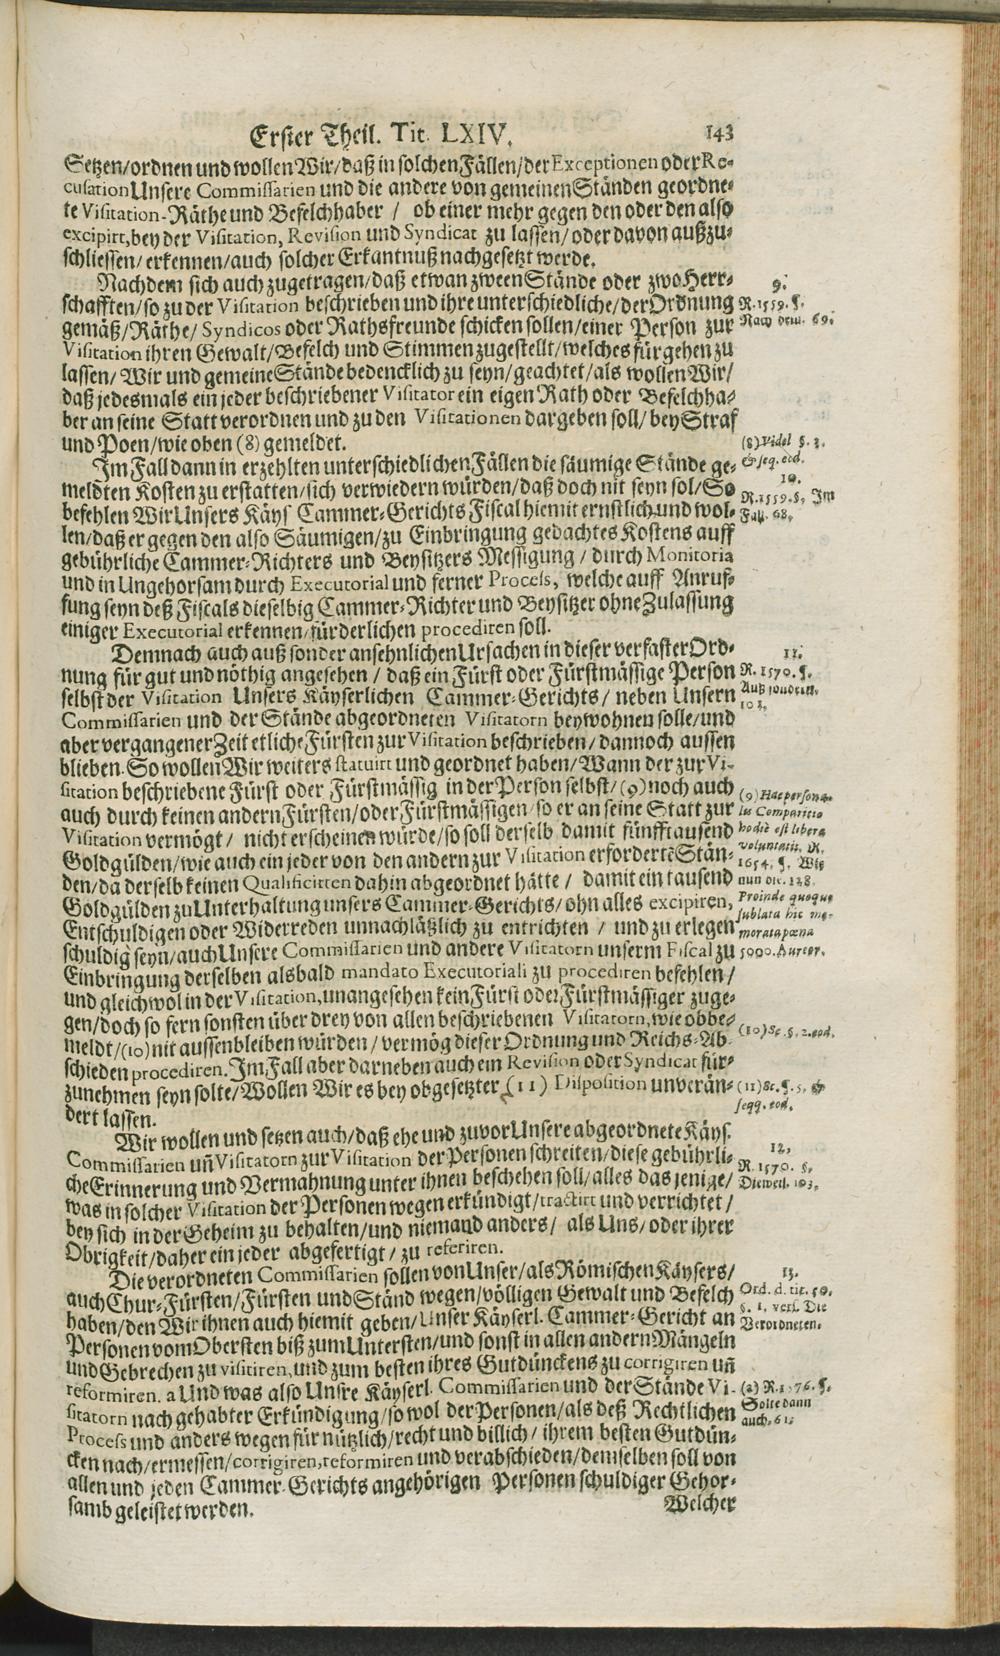 Erster Theil. Tit. LXIV. 143
Setzen/ordnen und wollen Wir/daß in solchen Fällen/der Exceptionen oder Re-
cusation Unsere Commissarien und die andere von gemeinen Ständen geordne-
te Visitation-Räthe und Befelchhaber / ob einer mehr gegen den oder den also
excipirt, bey der Visitation, Revision und Syndicat zu lassen/oder davon außzu-
schliessen/erkennen/auch solcher Erkantnuß nachgesetzt werde.
Nachdem sich auch zugetragen/daß etwan zween Stände oder zwo Herr-
schafften/so zu der Visitation beschrieben und ihre unterschiedliche/der Ordnung
gemäß/Räthe/Syndicos oder Rathsfreunde schicken sollen/einer Person zur
Visitation ihren Gewalt/Befelch und Stimmen zugestellt/welches fürgehen zu
lassen/Wir und gemeine Stände bedencklich zu seyn/geachtet/als wollen Wir/
daß jedesmals ein jeder beschriebener Visitator ein eigen Rath oder Befelchha-
ber an seine Statt verordnen und zu den Visitationen dargeben soll/bey Straf
und Poen/wie oben (8) gemeldet.
9.
R. 1559. §.
Nach dem. 69.
(8) Videl §. 3.
& seq. eod.
Im Fall dann in erzehlten unterschiedlichen Fällen die säumige Stände ge-
meldten Kosten zu erstatten/sich verwiedern würden/daß doch nit seyn sol/So
befehlen Wir Unsers Käys Cammer-Gerichts Fiscal hiemit ernstlich und wol-
len/daß er gegen den also Säumigen/zu Einbringung gedachtes Kostens auff
gebührliche Cammer-Richters und Beysitzers Messigung / durch Monitoria
und in Ungehorsam durch Executorial und ferner Process, welche auff Anruf-
fung seyn deß Fiscals dieselbig Cammer-Richter und Beysitzer ohne Zulassung
einiger Executorial erkennen/fürderlichen procediren soll.
10.
R. 1559. §. Im
Fall. 68.
Demnach auch auß sonder ansehnlichen Ursachen in dieser verfaster Ord-
nung für gut und nöthig angesehen / daß ein Fürst oder Fürstmässige Person
selbst der Visitation Unsers Käyserlichen Cammer-Gerichts/ neben Unsern
Commissarien und der Stände abgeordneten Visitatorn beywohnen solle/und
aber vergangener Zeit etliche Fürsten zur Visitation beschrieben/dannoch aussen
blieben. So wollen Wir weiters statuirt und geordnet haben/Wann der zur Vi-
sitation beschriebene Fürst oder Fürstmässig in der Person selbst/(9) noch auch
auch durch keinen andern Fürsten/oder Fürstmässigen/so er an seine Statt zur
Visitation vermögt/ nicht erscheinen würde/so soll derselb damit fünfftausend
Goldgülden/wie auch ein jeder von den andern zur Visitation erfordertē Stän-
den/da derselb keinen Qualificirten dahin abgeordnet hätte / damit ein tausend
Goldgülden zu Unterhaltung unsers Cammer-Gerichts/ohn alles excipiren,
Entschuldigen oder Widerreden unnachläßlich zu entrichten / und zu erlegen
schuldig seyn/auch Unsere Commissarien und andere Visitatorn unserm Fiscal zu
Einbringung derselben alsbald mandato Executoriali zu procediren befehlen/
und gleichwol in der Visitation, unangesehen kein Fürst oder Fürstmässiger zuge-
gen/doch so fern sonsten über drey von allen beschriebenen Visitatorn, wie obbe-
meldt/(10) nit aussenbleiben würden/vermög dieser Ordnung und Reichs-Ab-
schieden procediren. Im Fall aber darneben auch ein Revision oder Syndicat für-
zunehmen seyn solte/Wollen Wir es bey obgesetzter (11) Disposition unverän-
dert lassen.
11.
R. 1570. §.
Auß sondern.
103.
(9) Hæc persona-
lis Comparitio
hodiè est libera
voluntatis. R.
1654. §. Wie
nun ꝛc. 128.
Proinde quoque
sublata hic me-
morata pœna
5000. Aureor.
(10) Sc. §. 2. eod.
(11) Sc. §. 5. &
seqq. eod.
Wir wollen und setzen auch/daß ehe und zuvor Unsere abgeordnete Käys.
Commissarien uñ Visitatorn zur Visitation der Personen schreiten/diese gebührli-
che Erinnerung und Vermahnung unter ihnen beschehen soll/alles das jenige/
was in solcher Visitation der Personen wegen erkündigt/tractirt und verrichtet/
bey sich in der Geheim zu behalten/und niemand anders/ als Uns/oder ihrer
Obrigkeit/daher ein jeder abgefertigt/ zu referiren.
12.
R. 1570. §.
Dieweil. 103.
Die verordneten Commissarien sollen von Unser/als Römischen Käysers/
auch Chur-Fürsten/Fürsten und Ständ wegen/völligen Gewalt und Befelch
haben/den Wir ihnen auch hiemit geben/Unser Käyserl. Cammer-Gericht an
Personen vom Obersten biß zum Untersten/und sonst in allen andern Mängeln
und Gebrechen zu visitiren, und zum besten ihres Gutdünckens zu corrigiren uñ
reformiren. a Und was also Unsre Käyserl. Commissarien und der Stände Vi-
sitatorn nach gehabter Erkündigung/so wol der Personen/als deß Rechtlichen
Process und anders wegen für nützlich/recht und billich/ihrem besten Gutdün-
cken nach/ermessen/corrigiren, reformiren und verabschieden/demselben soll von
allen und jeden Cammer-Gerichts angehörigen Personen schuldiger Gehor-
samb geleistet werden.
13.
Ord. d. tit. 50.
§. 1. vers. Die
Verordneten.
(a) R. 1576. §.
Solte dann
auch. 61.
Welcher